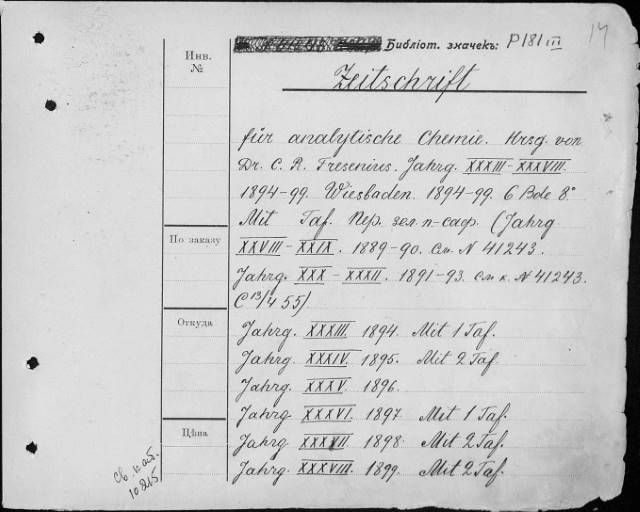 14
Библіот. значекъ: P181 III
Инв.
№
Zeitschrift
für analytische Chemie. Hrsg. von
Dr. C. R. Fresenius. Jahrg. XXXIII-XXXVIII.
1894-99. Wiesbaden. 1894-99. 6 Bde 8°
Mit Taf. Пер. зел. п-саф. (Jahrg
По заказу
XXVIII-XXIX. 1889-90. см. N 41243.
Jahrg. XXX-XXXII. 1891-93. см. к. N 41243.
C 13/4 55)
Откуда
Jahrg. XXXIII. 1894. Mit 1 Taf.
Jahrg. XXXIV. 1895. Mit 2 Taf.
Jahrg. XXXV. 1896.
Jahrg. XXXVI. 1897 Mit 1 Taf.
Цѣна
Jahrg. XXXVII. 1898. Mit 2 Taf.
Jahrg. XXXVIII. 1899. Mit 2 Taf.
10215